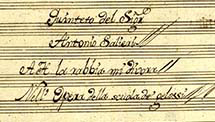 Quintetto del Sigr
Antonio Salieri
Ah la rabbia mi divora
Nell' Opera della scuola de' gelosi